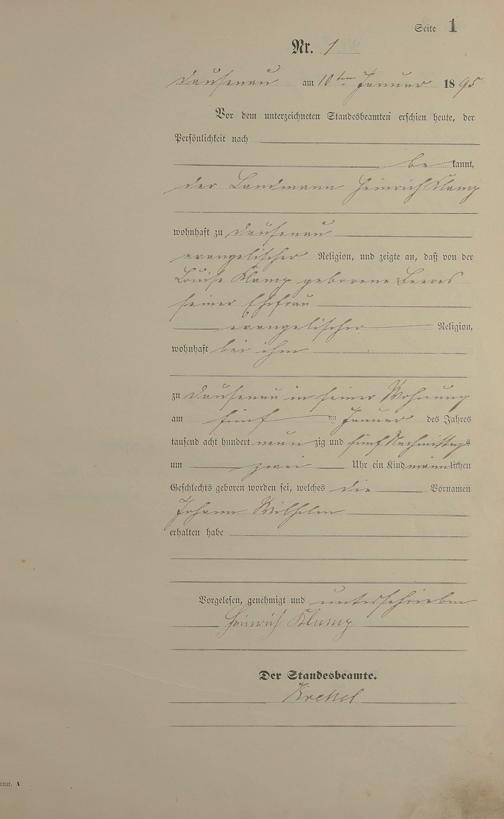 Seite 1
Nr. 1
Dausenau am 10ten Januar 1895
Vor dem unterzeichneten Standesbeamten erschien heute, der
Persönlichkeit nach
be kannt,
der Landmann Heinrich Klamp
wohnhaft zu Dausenau
evangelischer Religion, und zeigte an, daß von der
Louise Klamp geborene
seiner Ehefrau
evangelischer Religion,
wohnhaft bei ihm
zu Dausenau in seiner Wohnung
am fünf ten Januar des Jahres
tausend acht hundert neun zig und fünf Nachmittags
um zwei Uhr ein Kind männlichen
Geschlechts geboren worden sei, welches die Vornamen
Johann Wilhelm
erhalten habe
Vorgelesen, genehmigt und unterschrieben
Heinrich Klamp
Der Standesbeamte.
A